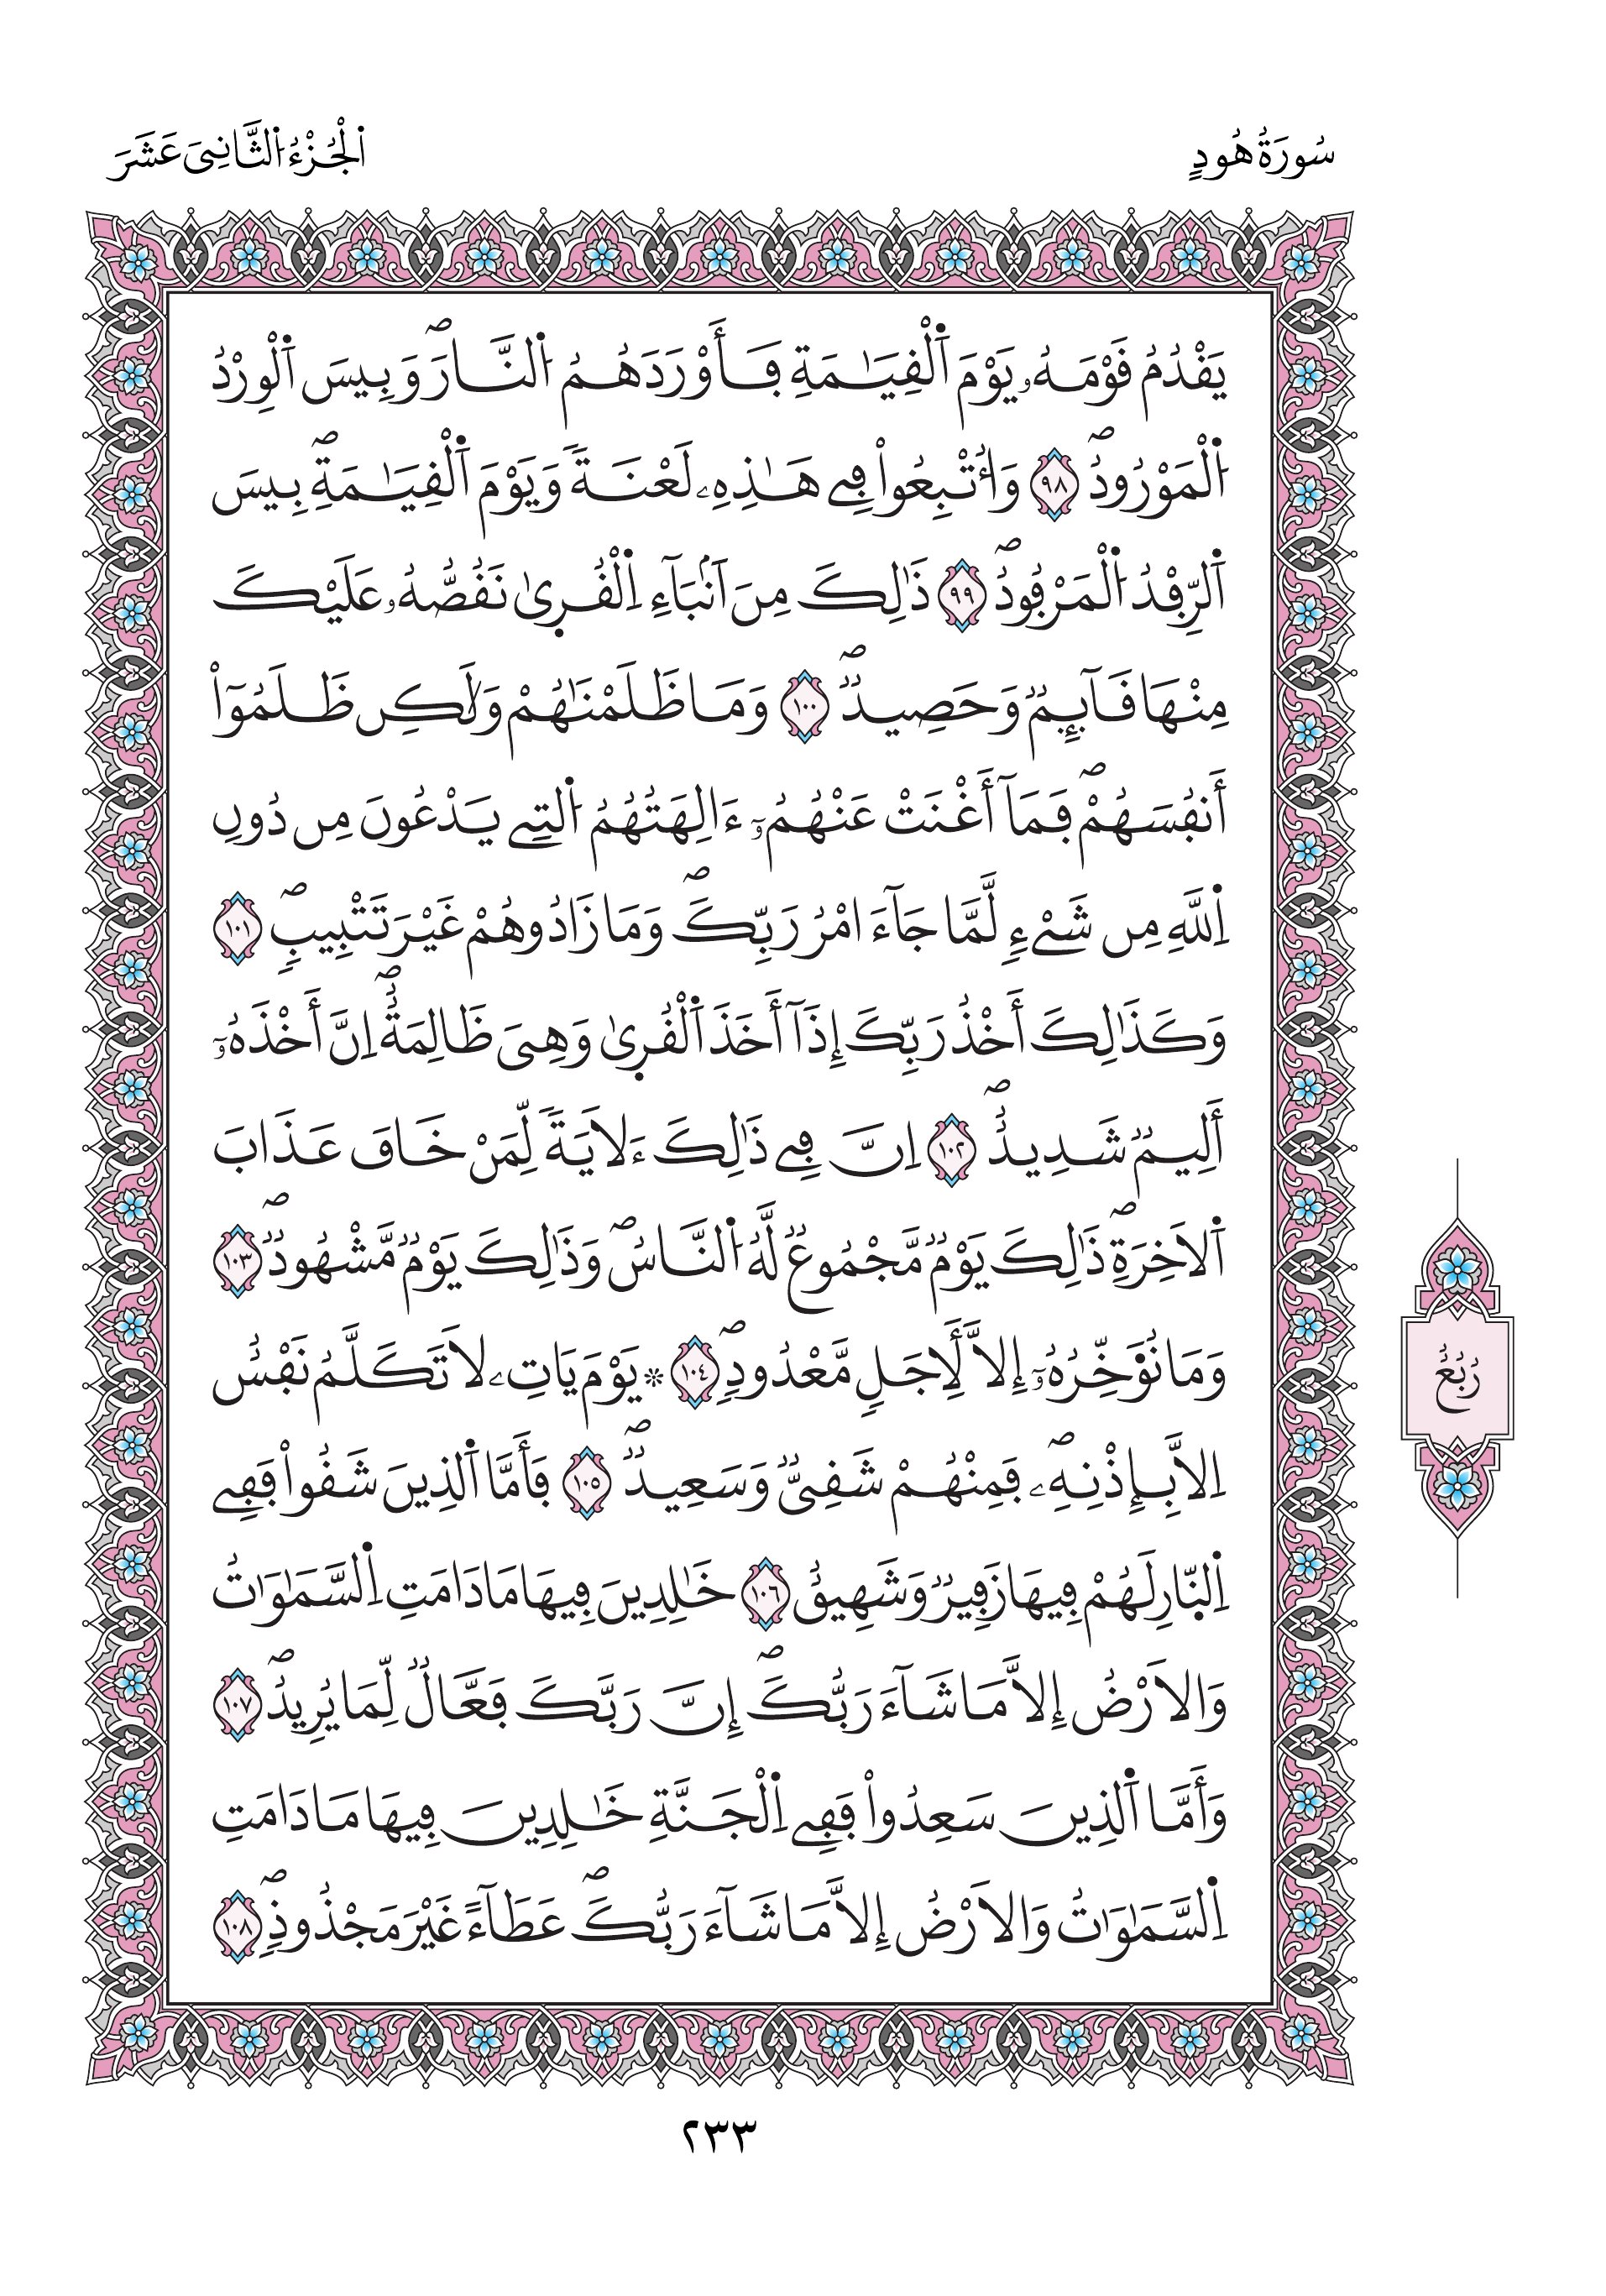 سُورَةُ هُودٍ
اَلْجُزْءُ اُلثَّانِىَ عَشَرَ
يَقْدُمُ قَوْمَهُۥ يَوْمَ اَلْقِيَـٰمَةِ فَأَوْرَدَهُمُ اُلنَّارَۖ وَبِيسَ اَلْوِرْدُ
اُلْمَوْرُودُۖ ٩٨ وَأُتْبِعُواْ فِے هَـٰذِهِۦ لَعْنَةٗ وَيَوْمَ اَلْقِيَـٰمَةِۖ بِيسَ
اَلرِّفْدُ اُلْمَرْفُودُۖ ٩٩ ذَٰلِكَ مِنَ اَنۢبَآءِ اِلْقُر۪ىٰ نَقُصُّهُۥ عَلَيْكَ
مِنْهَا قَآئِمٞ وَحَصِيدٞۖ ١٠٠ وَمَا ظَلَمْنَـٰهُمْ وَلَـٰكِن ظَلَمُوٓاْ
أَنفُسَهُمْۖ فَمَآ أَغْنَتْ عَنْهُمُۥٓ ءَالِهَتُهُمُ اُلتِے يَدْعُونَ مِن دُونِ
اِللَّهِ مِن شَےْءٖ لَّمَّا جَآءَ امْرُ رَبِّكَۖ وَمَا زَادُوهُمْ غَيْرَ تَتْبِيبٖۖ ١٠١
وَكَذَٰلِكَ أَخْذُ رَبِّكَ إِذَآ أَخَذَ اَلْقُر۪ىٰ وَهِىَ ظَـٰلِمَةٌۖ اِنَّ أَخْذَهُۥٓ
أَلِيمٞ شَدِيدٌۖ ١٠٢ اِنَّ فِے ذَٰلِكَ ءَلَايَةٗ لِّمَنْ خَافَ عَذَابَ
اَلَاخِرَةِۖ ذَٰلِكَ يَوْمٞ مَّجْمُوعٞ لَّهُ اُلنَّاسُۖ وَذَٰلِكَ يَوْمٞ مَّشْهُودٞۖ ١٠٣
وَمَا نُؤَخِّرُهُۥٓ إِلَّا لِأَجَلٖ مَّعْدُودٖۖ ١٠٤ ۞ يَوْمَ يَاتِۦ لَا تَكَلَّمُ نَفْسٌ
اِلَّا بِإِذْنِهِۦۖ فَمِنْهُمْ شَقِىّٞ وَسَعِيدٞۖ ١٠٥ فَأَمَّا اَلذِينَ شَقُواْ فَفِے
اِلنّ۪ارِ لَهُمْ فِيهَا زَفِيرٞ وَشَهِيقٌ ١٠٦ خَـٰلِدِينَ فِيهَا مَا دَامَتِ اِلسَّمَـٰوَٰتُ
وَالَارْضُ إِلَّا مَا شَآءَ رَبُّكَۖ إِنَّ رَبَّكَ فَعَّالٞ لِّمَا يُرِيدُۖ ١٠٧
وَأَمَّا اَلذِينَ سَعِدُواْ فَفِے اِلْجَنَّةِ خَـٰلِدِينَ فِيهَا مَا دَامَتِ
اِلسَّمَـٰوَٰتُ وَالَارْضُ إِلَّا مَا شَآءَ رَبُّكَۖ عَطَآءً غَيْرَ مَجْذُوذٖۖ ١٠٨
رُبُعُ
٢٣٣